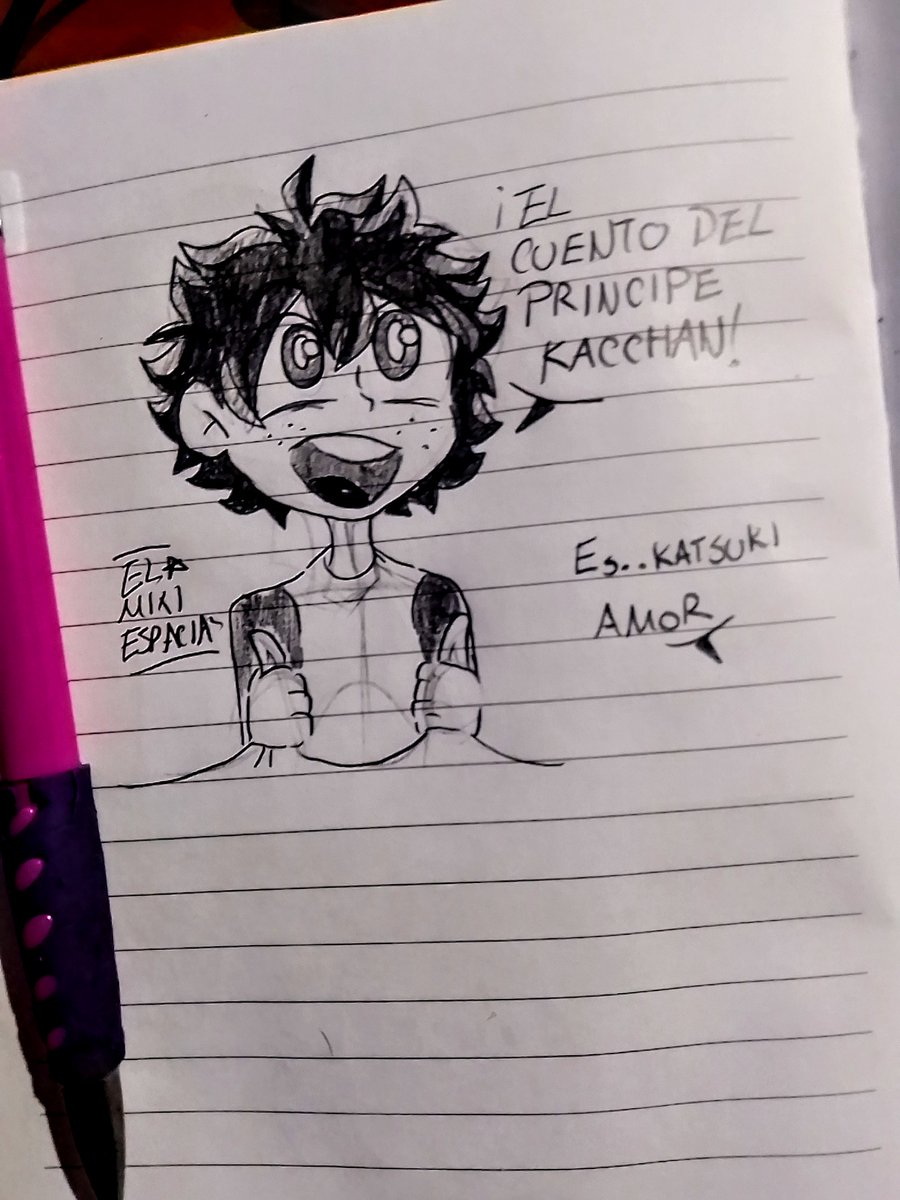 ¡EL
CUENTO DEL
PRINCIPE
KACCHAN!
Es..KATSUKI
AMOR
ELA
MIKI
ESPACIAL